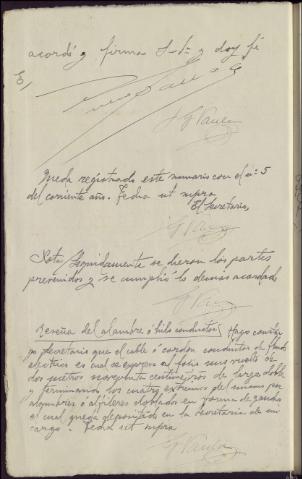 acordó y firma S. Sª y doy fé
Queda registrado este sumario con el nº 5
del corriente año. Fecha ut supra
El Secretario,
Nota Seguidamente se dieron los partes
prevenidos y se cumplió lo demás acordado
Reseña del alambre ó hilo conductor/ Hago constar
yo Secretario que el cable ó cordon conductor de fluido
electrico es cual se expresa
dos metros noventa centimetros de largo, doble
y terminando los cuatro extremos del mismo por
alambres ó alfileres doblados en forma de
el cual queda depositado en la Secretaria de mi
cargo. Fecha ut supra